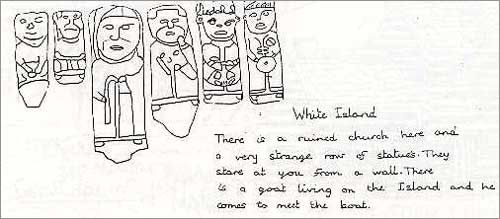 White Island
There is a ruined church here and
a very strange row of statues. They
stare at you from a wall. There
is a goat living on the Island and he
comes to meet the boat.